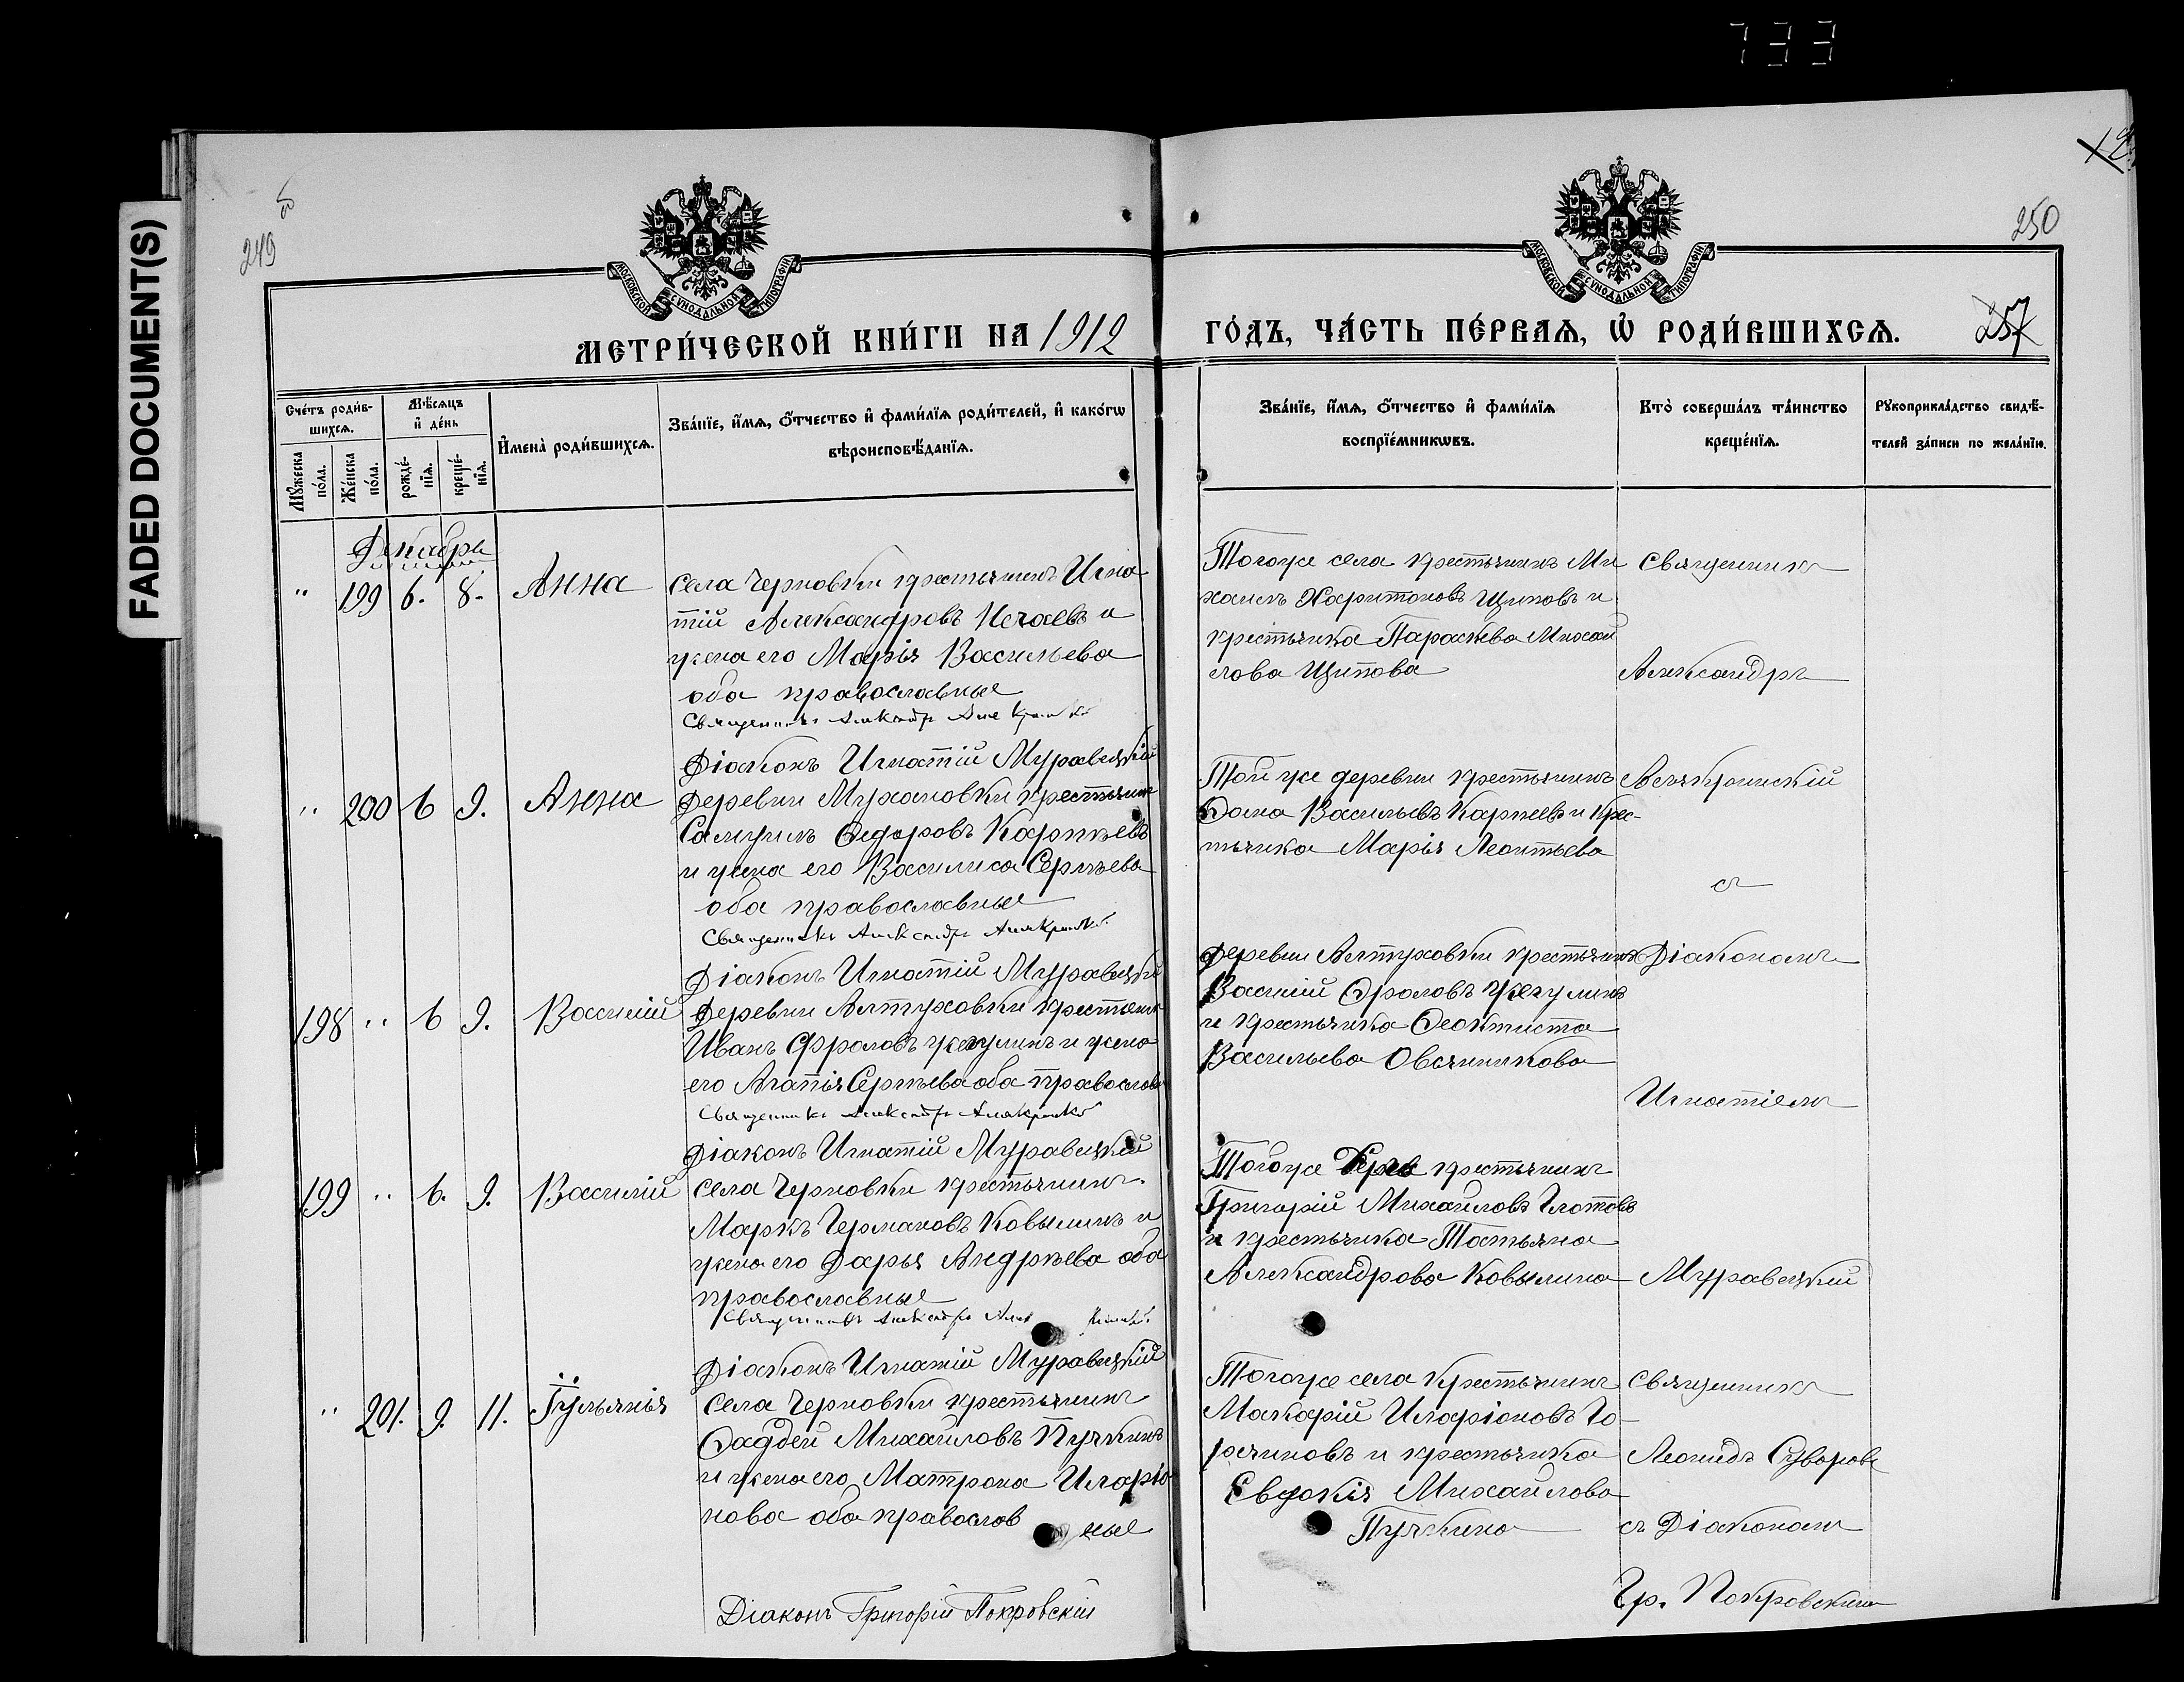 733
FADED DOCUMENT(S)
249
250
МОСКОВСКОЙ СѴНОДАЛЬНОЙ ТИПОГРАФІИ
МОСКОВСКОЙ СѴНОДАЛЬНОЙ ТИПОГРАФІИ
МЕТРИ́ЧЕСКОЙ КНИ́ГИ НА 1912
ГО́ДЪ, ЧА́СТЬ ПЕ́РВАѦ, Ѡ҆ РОДИ́ВШИХСѦ.
257
Сче́тъ роди́в-
шихсѧ.
Мꙋ́жеска по́ла.
Же́нска по́ла.
Мѣ́сѧцъ и҆ де́нь
рожде́-нїѧ.
креще́-нїѧ.
И҆мена̀ роди́вшихсѧ.
Зва́нїе, и҆́мѧ, ѻ҆́тчество и҆ фами́лїѧ роди́телей, и҆ како́гѡ
вѣроисповѣ́данїѧ.
Зва́нїе, и҆́мѧ, ѻ҆́тчество и҆ фами́лїѧ
воспрїе́мникѡвъ.
Кто̀ соверша́лъ та́инство
креще́нїѧ.
Рꙋкоприкла́дство свидѣ́-
телей за́писи по жела́нїю.
Декабрь
" 199 6. 8. Анна
Села Черновки крестьянинъ Игна
тій Александровъ Нечаевъ и
жена его Марія Васильева
оба православные
Священникъ Александръ
Діаконъ Игнатій Муравецкій
Тогоже села крестьянинъ Ми
хаилъ Харитоновъ Щиповъ и
крестьянка Параскева Михаи
лова Щипова
Священникъ
Александръ
" 200 6 9. Анна
Деревни Мухановки крестьянинъ
Самуилъ Ѳедоровъ Карпѣевъ
и жена его Василиса Сергѣева
оба православные
Священникъ Александръ
Діаконъ Игнатій Муравецкій
Той же деревни крестьянинъ
Ѳома Васильевъ Карпеевъ и крес-
тьянка Марія Леонтьева
Алякринскій
съ
198 " 6 9. Василій
Деревни Алтуховки крестьянинъ
Иванъ Фроловъ Жегулинъ и жена
его Агапія Сергѣева оба православ
Священникъ Александръ
Діаконъ Игнатій Муравецкій
Деревни Алтуховки крестьянинъ
Василій Фроловъ Жегулинъ
и крестьянка Ѳеоктиста
Васильева Овсянникова
Діакономъ
Игнатіемъ
199 " 6. 9. Василій
Села Черновки крестьянинъ
Маркъ Германовъ Ковылинъ и
жена его Дарья Андрѣева оба
православные
Священникъ Александръ
Діаконъ Игнатій Муравецкій
Тогоже крестьянинъ
Григорій Михайловъ Глотовъ
и крестьянка Татьяна
Александрова Ковылина
Муравецкій
" 201. 9. 11. Іульянія
Села Черновки крестьянинъ
Ѳаддей Михайловъ Пучкинъ
и жена его Матрона Иларіо
нова оба православ ные
Діаконъ Григорій Покровскій
Тогоже села крестьянинъ
Макарій Иларіоновъ Го-
рячиновъ и крестьянка
Евдокія Михайлова
Пучкина
Священникъ
Леонидъ Суворовъ
съ Діакономъ
Гр. Покровскимъ